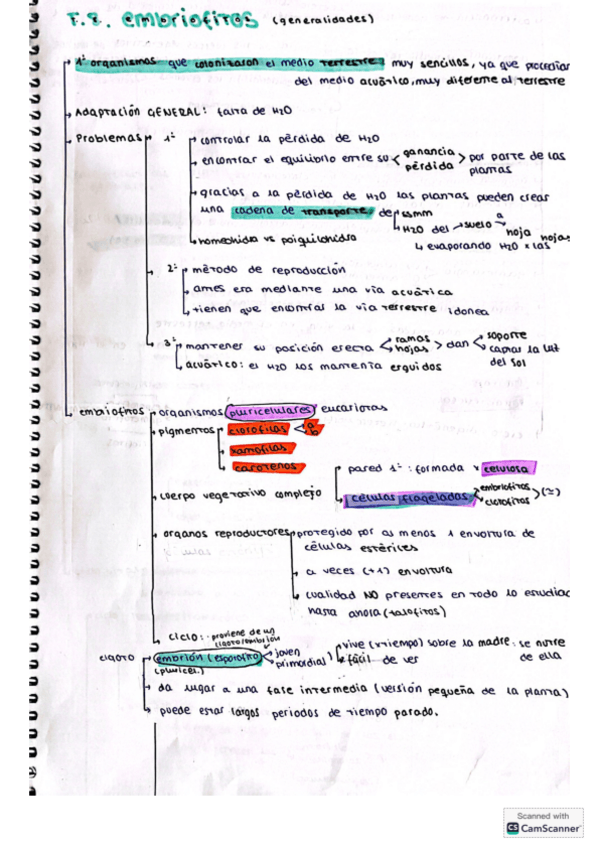 T.8. embriofitos (generalidades)
1º organismos que colonizaron el medio terrestre, muy sencillos, ya que procedían
del medio acuático, muy diferente al terrestre
Adaptación GENERAL: falta de H2O
Problemas 1º controlar la pérdida de H2O
encontrar el equilibrio entre su ganancia pérdida por parte de las plantas
gracias a la pérdida de H2O las plantas pueden crear
una cadena de transporte de ssmm
H2O del suelo a hoja
evaporando H2O x las hojas
homeohidra vs poiquilohidra
2º método de reproducción
antes era mediante una vía acuática
tienen que encontrar la vía terrestre idónea
3º mantener su posición erecta ramos hojas dan soporte captar la luz del sol
acuático: el H2O los mantenía erguidos
embriofitos organismos pluricelulares eucariotas
pigmentos clorofilas a b
xantofilas
carotenos
cuerpo vegetativo complejo pared 1ª: formada x celulosa
células flageladas embriofitos clorofitos (=)
órganos reproductores protegido por as menos 1 envoltura de
células estériles
a veces (+1) envoltura
cualidad NO presentes en todo lo estudiad
hasta ahora (talofitos)
ciclo: proviene de un cigoto/embrión
cigoto embrión (esporofito) joven primordial vive (xtiempo) sobre la madre: se nutre de ella
(pluricel.) fácil de ver
da lugar a una fase intermedia (versión pequeña de la planta)
puede estar largos periodos de tiempo parado.
Scanned with
CS CamScanner